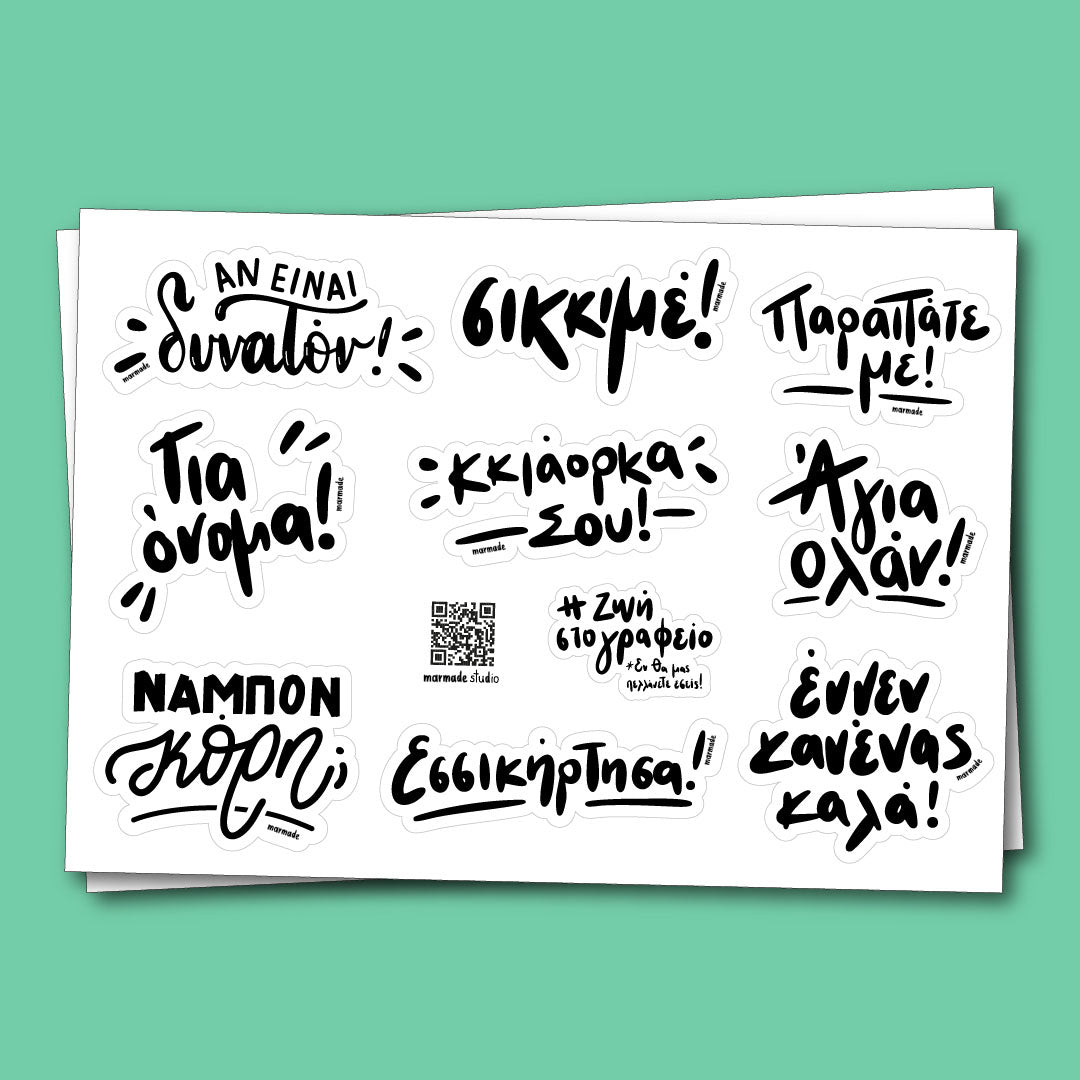 ΑΝ ΕΙΝΑΙ
δυνατόν!
marmade
σικκιμέ!
marmade
Παραπάτε
με!
marmade
Για
όνομα!
marmade
κκιάορκα
Σου!
marmade
Άγια
ολάν!
marmade
marmade studio
# Ζωή
στο γραφείο
*Εν θα μας
πελλάνετε εσείς!
ΝΑΜΠΟΝ
κόρη;
marmade
Εσσικήρτησα!
marmade
έννεν
κανένας
καλά!
marmade